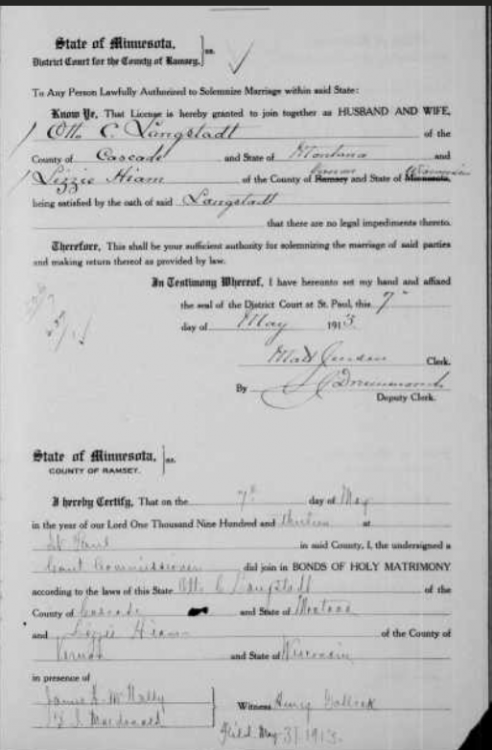 State of Minnesota,
District Court for the County of Ramsey. } ss.
To Any Person Lawfully Authorized to Solemnize Marriage within said State:
Know Ye, That License is hereby granted to join together as HUSBAND AND WIFE,
Otto C. Langstadt of the
County of Cascade and State of Montana and
Lizzie Hiam of the County of Ramsey Vernon and State of Minnesota, Wisconsin
being satisfied by the oath of said Langstadt
that there are no legal impediments thereto.
Therefore, This shall be your sufficient authority for solemnizing the marriage of said parties
and making return thereof as provided by law.
In Testimony Whereof, I have hereunto set my hand and affixed
the seal of the District Court at St. Paul, this 7"
day of May 1913
Matt Jensen Clerk.
By Drummond
Deputy Clerk.
State of Minnesota,
COUNTY OF RAMSEY. } ss.
I hereby Certify, That on the 7th day of May
in the year of our Lord One Thousand Nine Hundred and thirteen at
St Paul in said County, I, the undersigned a
Court Commissioner did join in BONDS OF HOLY MATRIMONY
according to the laws of this State Otto C Langstadt of the
County of Cascade and State of Montana
and Lizzie Hiam of the County of
Vernon and State of Wisconsin
in presence of
James A. McNally
Macdonald
Witness Henry Gallick
Filed May 31 1913.